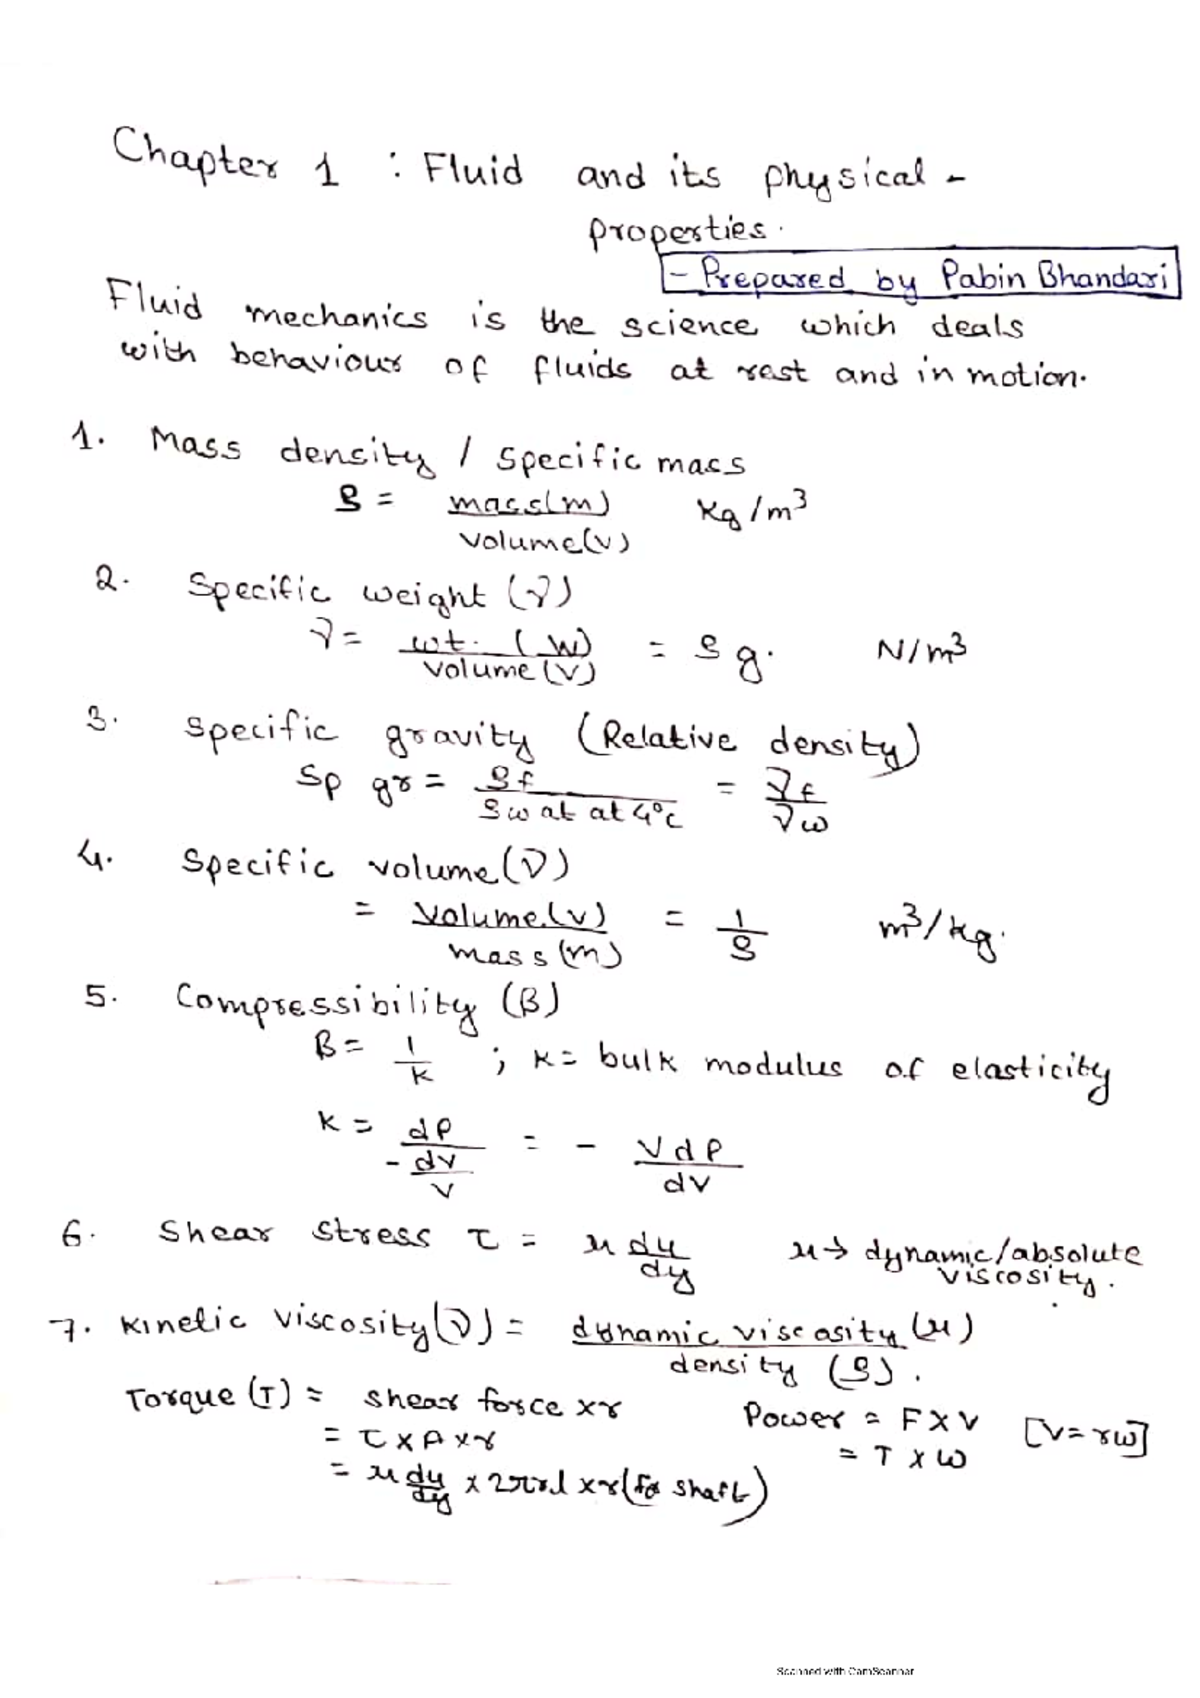 Chapter 1 : Fluid and its physical -
properties.
- Prepared by Pabin Bhandari
Fluid mechanics is the science which deals
with behaviour of fluids at rest and in motion.
1. Mass density / specific mass
ρ = mass(m) / volume(v) kg/m³
2. Specific weight (γ)
γ = wt. (W) / volume(v) = ρg. N/m³
3. specific gravity (Relative density)
Sp gr = ρf / ρw at at 4°c = γf / γw
4. Specific volume (ν)
= volume.(v) / mass(m) = 1/ρ m³/kg.
5. Compressibility (β)
β = 1/k ; k = bulk modulus of elasticity
k = dP / (-dv/v) = - VdP / dv
6. Shear stress τ = μ du/dy μ → dynamic/absolute
viscosity.
7. Kinetic viscosity (ν) = dynamic viscosity (μ) / density (ρ).
Torque (T) = shear force x r Power = F x V [V = rω]
= τ x A x r = T x ω
= μ du/dy x 2πrl x r (for shaft)
Scanned with CamScanner